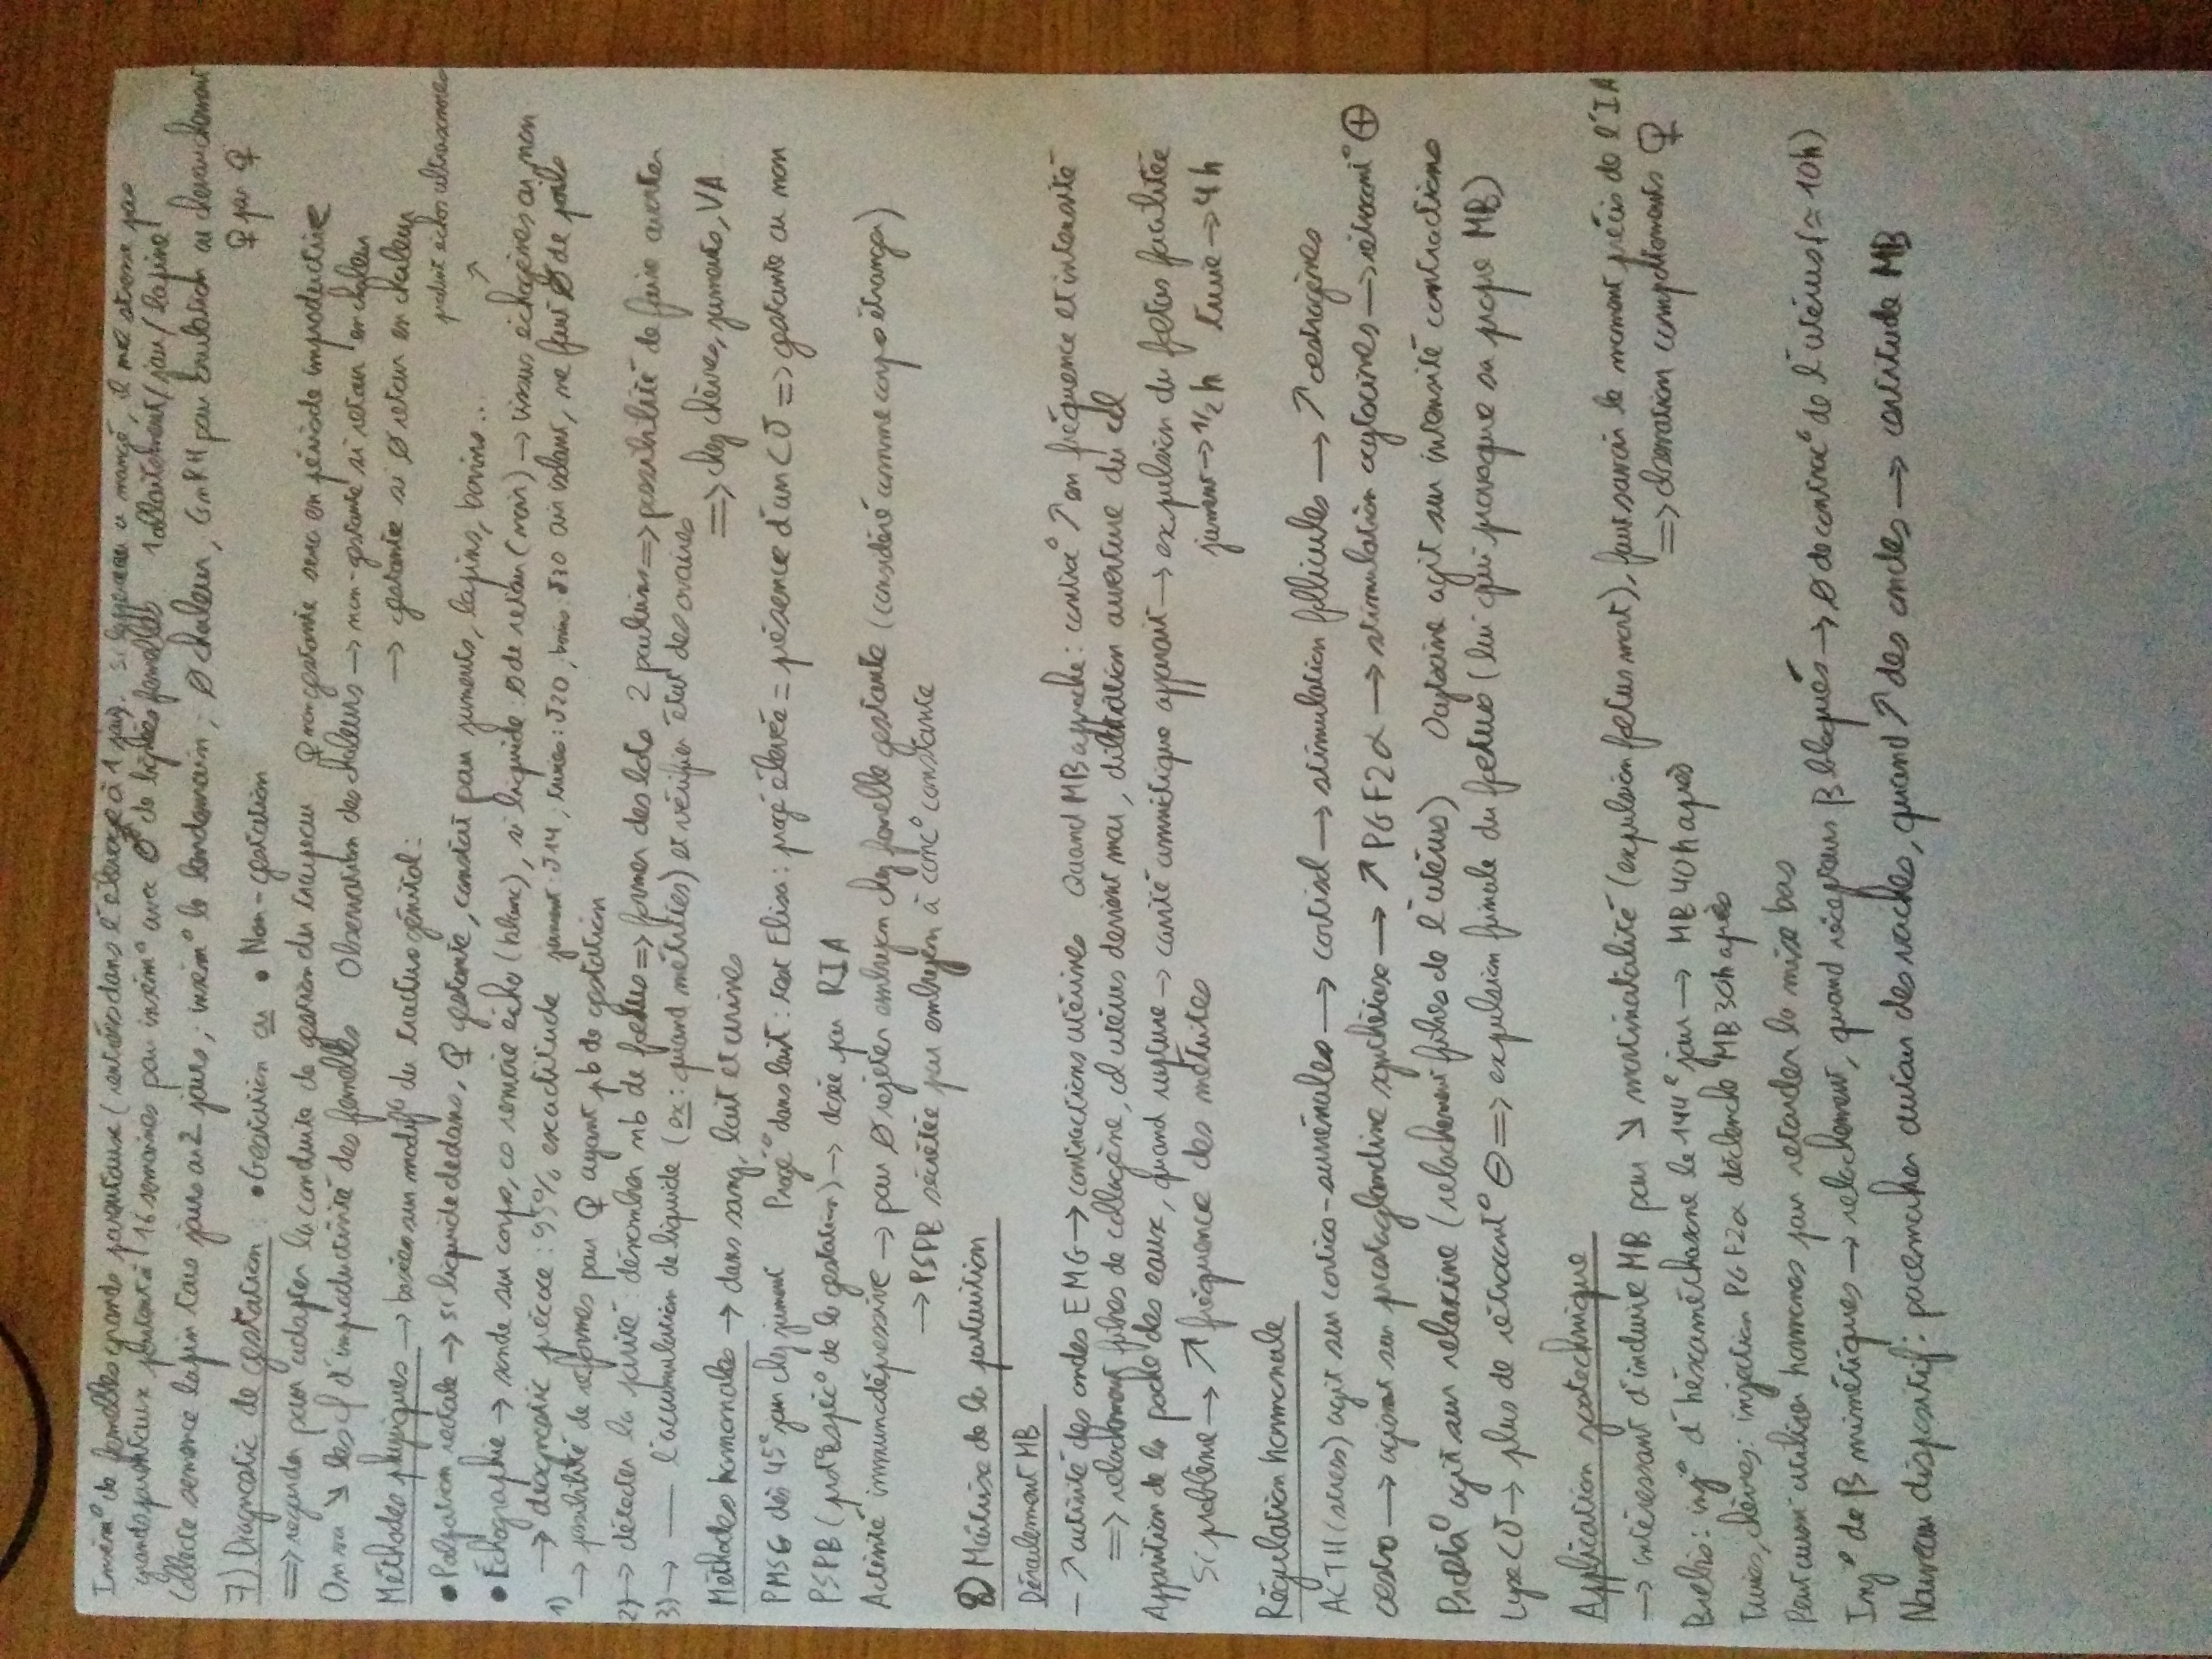 Insém° de femelles grands parentaux (rentrées dans l'élevage à 1 jour). Si lapereau a mangé, il me stresse pas
grands parentaux partent à 16 semaines pour insém° avec ♂ de lignées femelles 1 allaitement/jour/lapine
Collecte semence lapin tous jours ou 2 jours, insém° le lendemain, Ø chaleur, GnRH pour ovulation ou chevauchement
♀ par ♀
7) Diagnostic de gestation : • Gestation ou • Non-gestation
=> regarder pour adapter la conduite de gestion du troupeau ♀ non gestante sera en période improductive
On va ↘ les d'improductivité des femelles Observation des chaleurs → non-gestante si retour en chaleur
→ gestante si Ø retour en chaleur
Méthodes physiques → basées sur modif° du tractus génital :
• Palpation rectale → si liquide dedans, ♀ gestante, constat pour juments, lapins, bovins..
produit échos ultrasonores
↑
• Échographie → sonde sur corps, ça renvoie écho (blanc), si liquide Ø de retour (noir) → tissus échogènes ou non
→ diagnostic précoce : 95% exactitude jument : J14, truies : J20, bovins : J30 air isolant, ne faut Ø de poils
1) → possibilité de réformes pour ♀ ayant pb de gestation
2) → détecter la parité : dénombrer nb de foetus => former des lots 2 poulains => possibilité de faire avorter
3) → — l'accumulation de liquide (ex : quand métrites) et vérifier état des ovaires
=> chez chèvres, juments, VA
Méthodes hormonales → dans sang, lait et urines
PMSG dès 45e jour chez jument Progé° dans lait : test Elisa : progé élevée = présence d'un CJ => gestante ou non
PSPB (prot° spéc° de la gestation) → dosée par RIA
Activité immunodépressive → pour Ø rejeter embryon chez femelle gestante (considéré comme corps étranger)
→ PSPB sécrétée par embryon à conc° constante
8) Maîtrise de la parturition
Déroulement MB
- ↗ activité des ondes EMG → contractions utérines Quand MB approche : contrac° ↑ en fréquence et intensité
=> relachement fibres de collagène, col utérus devient mou, dilatation ouverture du col
Apparition de la poche des eaux, quand rupture → cavité amniotique apparait → expulsion du foetus facilitée
Si problème → ↗ fréquence des métrites jument → 1/2 h truie → 4 h
Régulation hormonale
ACTH (stress) agit sur cortico-surrénales → cortisol → stimulation follicules → ↗ oestrogènes
oestro → agissent sur prostaglandine synthétase → ↗ PGF2α → stimulation ocytocines → rétrocont° ⊕
Prosta° agit sur relaxine (relachement fibres de l'utérus) Ocytocine agit sur intensité contractions
Lyse CJ → plus de rétrocont° ⊖ => expulsion finale du foetus (lui qui provoque sa propre MB)
Application zootechnique
→ intéressant d'induire MB pour ↘ mortinatalité (expulsion foetus mort), faut savoir le moment précis de l'IA
=> observation comportements ♀
Brebis : inj° d'héxaméthasone le 144e jour → MB 40h après
Truies, chèvres : injection PGF2α déclenche MB 30h après
Peut aussi utiliser hormones pour retarder la mise bas
Inj° de β mimétiques → relachement, quand récepteurs β bloqués → Ø de contrac° de l'utérus (≃ 10h)
Nouveau dispositif : pacemaker autour des vaches, quand ↗ des ondes → certitude MB